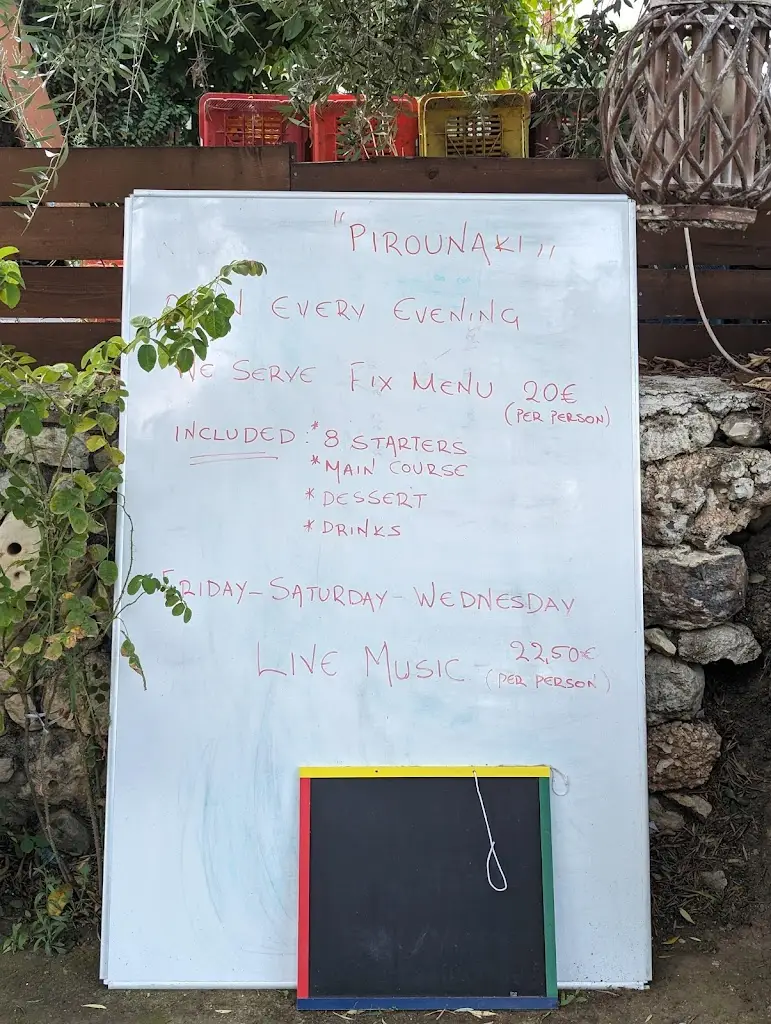 "PIROUNAKI"
EVERY EVENING
WE SERVE FIX MENU 20€
(PER PERSON)
INCLUDED: * 8 STARTERS
* MAIN COURSE
* DESSERT
* DRINKS
FRIDAY - SATURDAY - WEDNESDAY
LIVE MUSIC 22,50€
(PER PERSON)